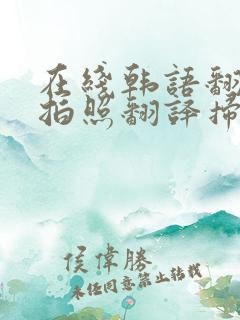 在綫韩語翻
拍照翻譯掃
侯偉勝
未经同意禁止转载